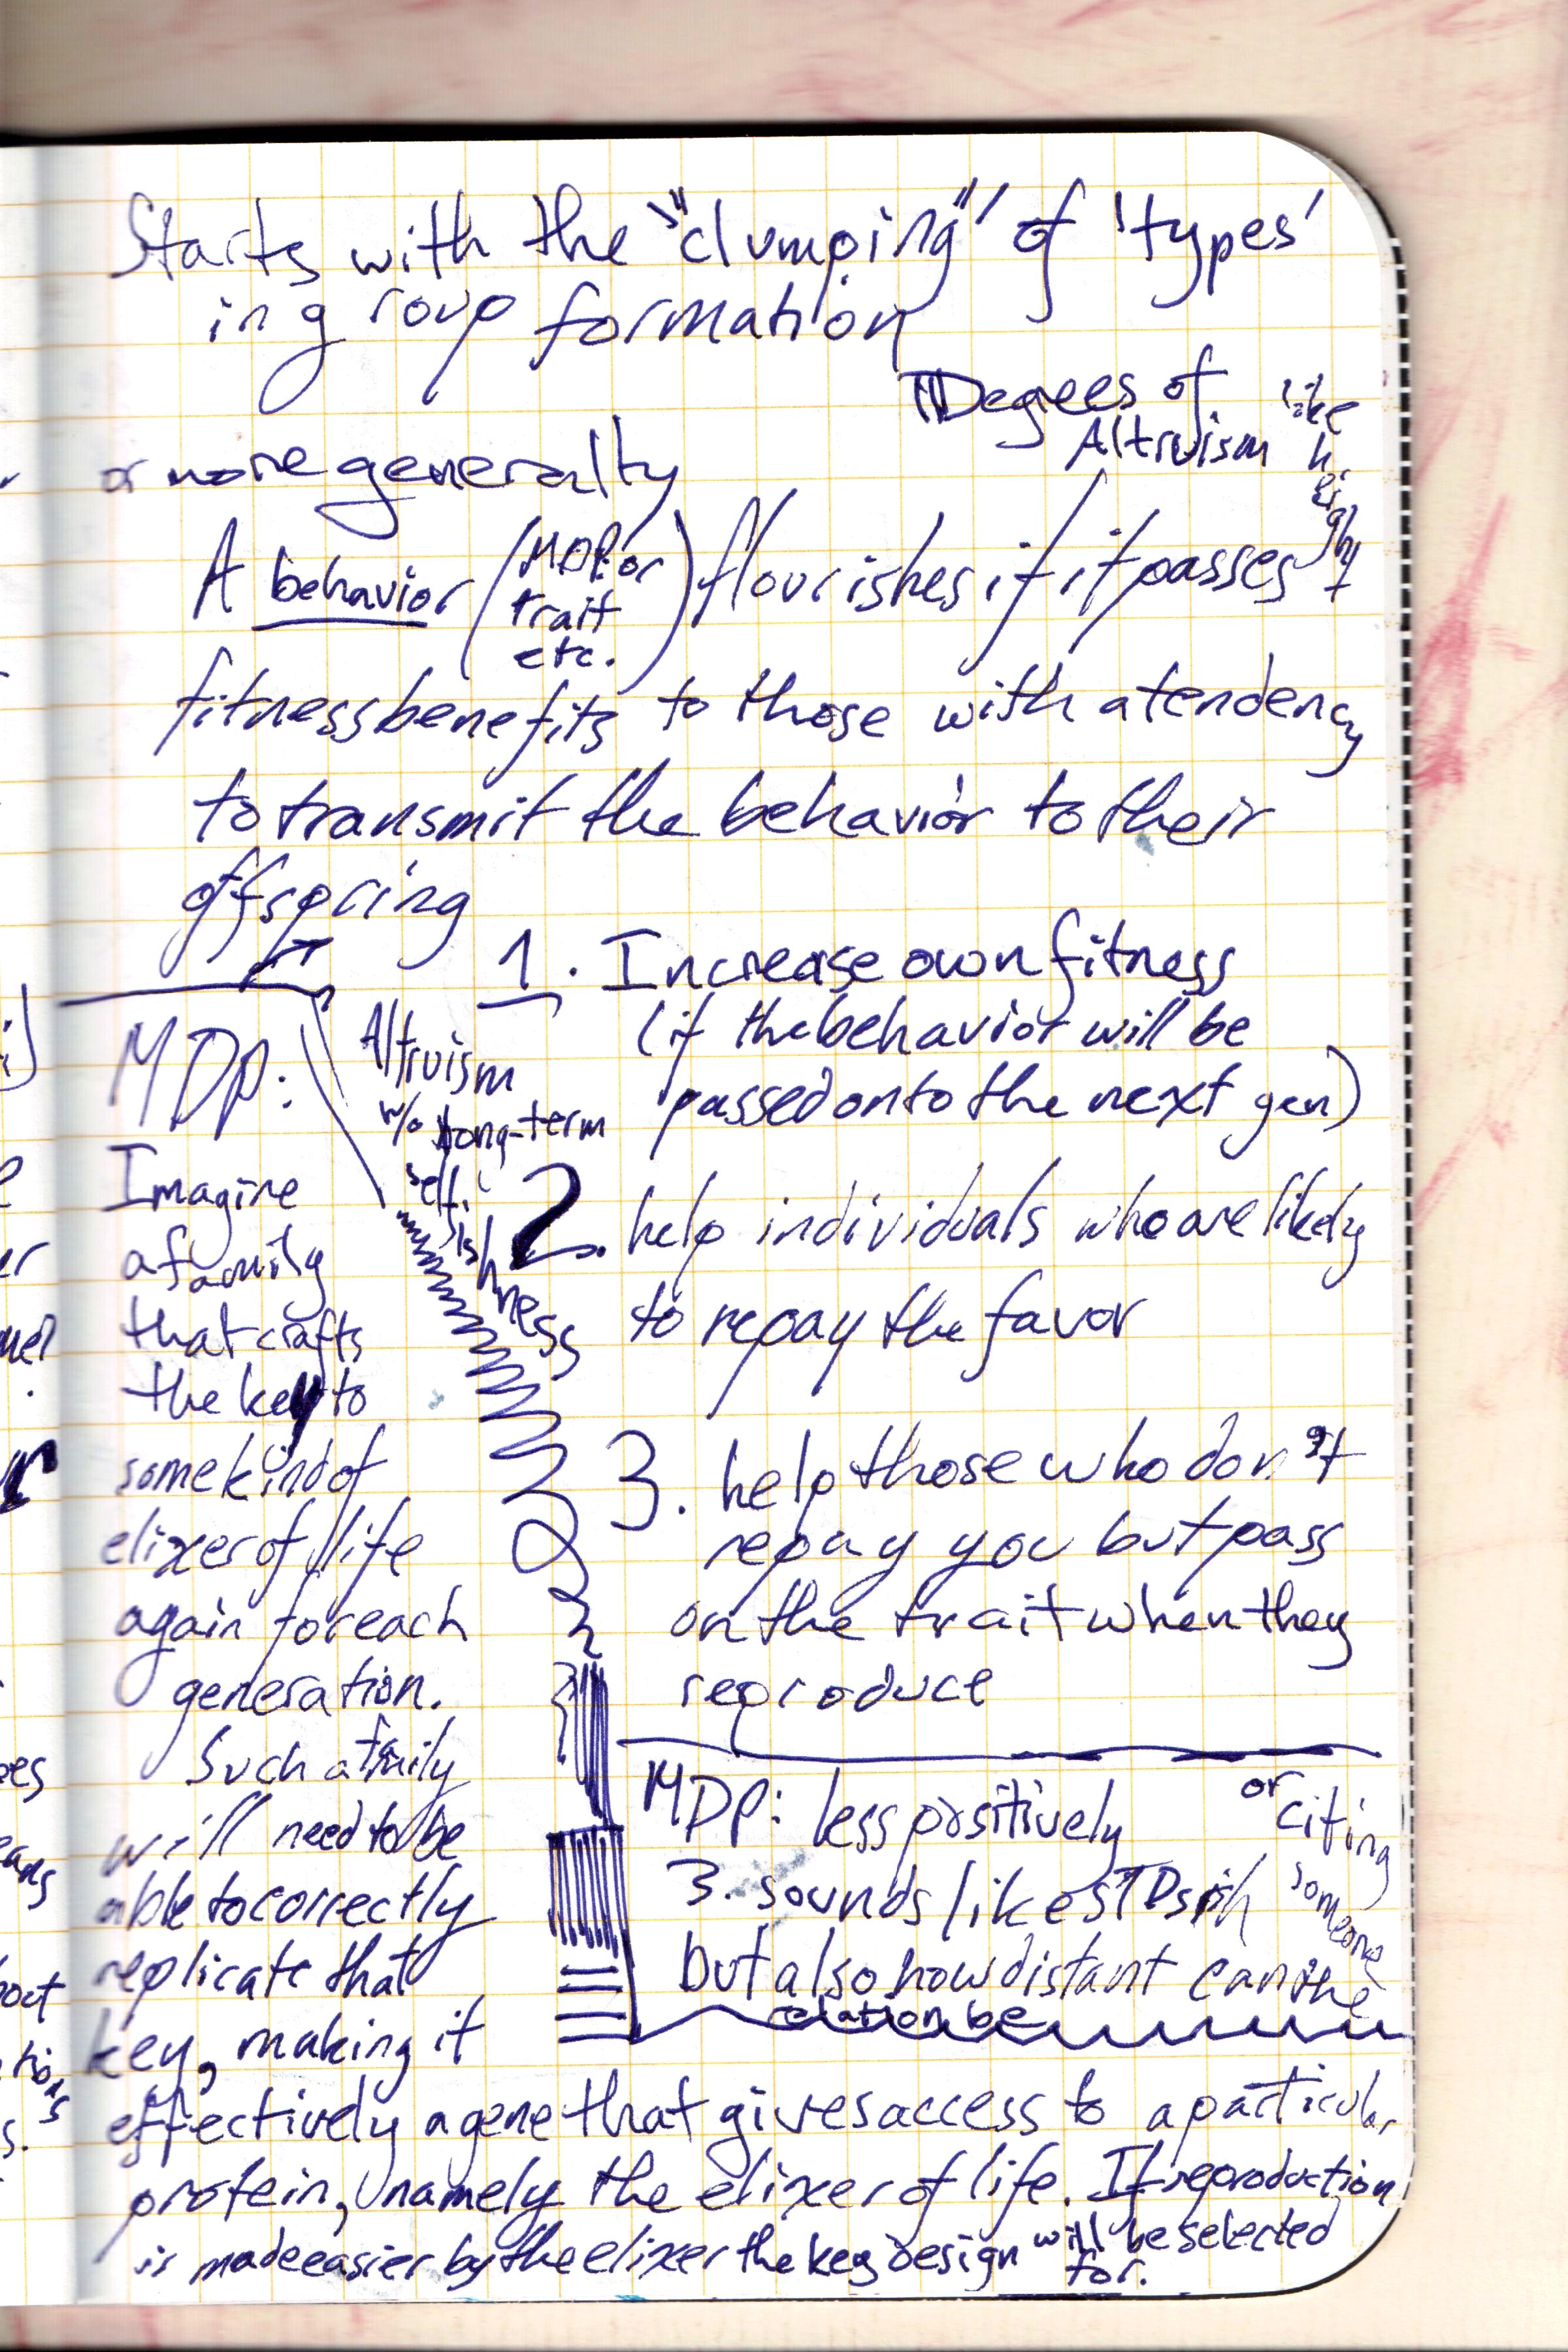 Starts with the "clumping" of 'types'
in group formation
Degrees of
Altruism
like
height
or more generally
A behavior (MDP: or trait etc.) flourishes if it passes
fitness benefits to those with a tendency
to transmit the behavior to their
offspring
1. Increase own fitness
(if the behavior will be
passed on to the next gen)
Altruism
w/o long-term
self-ishness
2. help individuals who are likely
to repay the favor
3. help those who don't
repay you but pass
on the trait when they
reproduce
MDP: less positively
3. sounds like STDs
but also how distant can the
relation be
or citing
someone
MDP:
Imagine
a family
that crafts
the key to
some kind of
elixer of life
again for each
generation.
Such a family
will need to be
able to correctly
replicate that
key, making it
effectively a gene that gives access to a particular
protein, namely the elixer of life. If reproduction
is made easier by the elixer the key design will be selected
for.